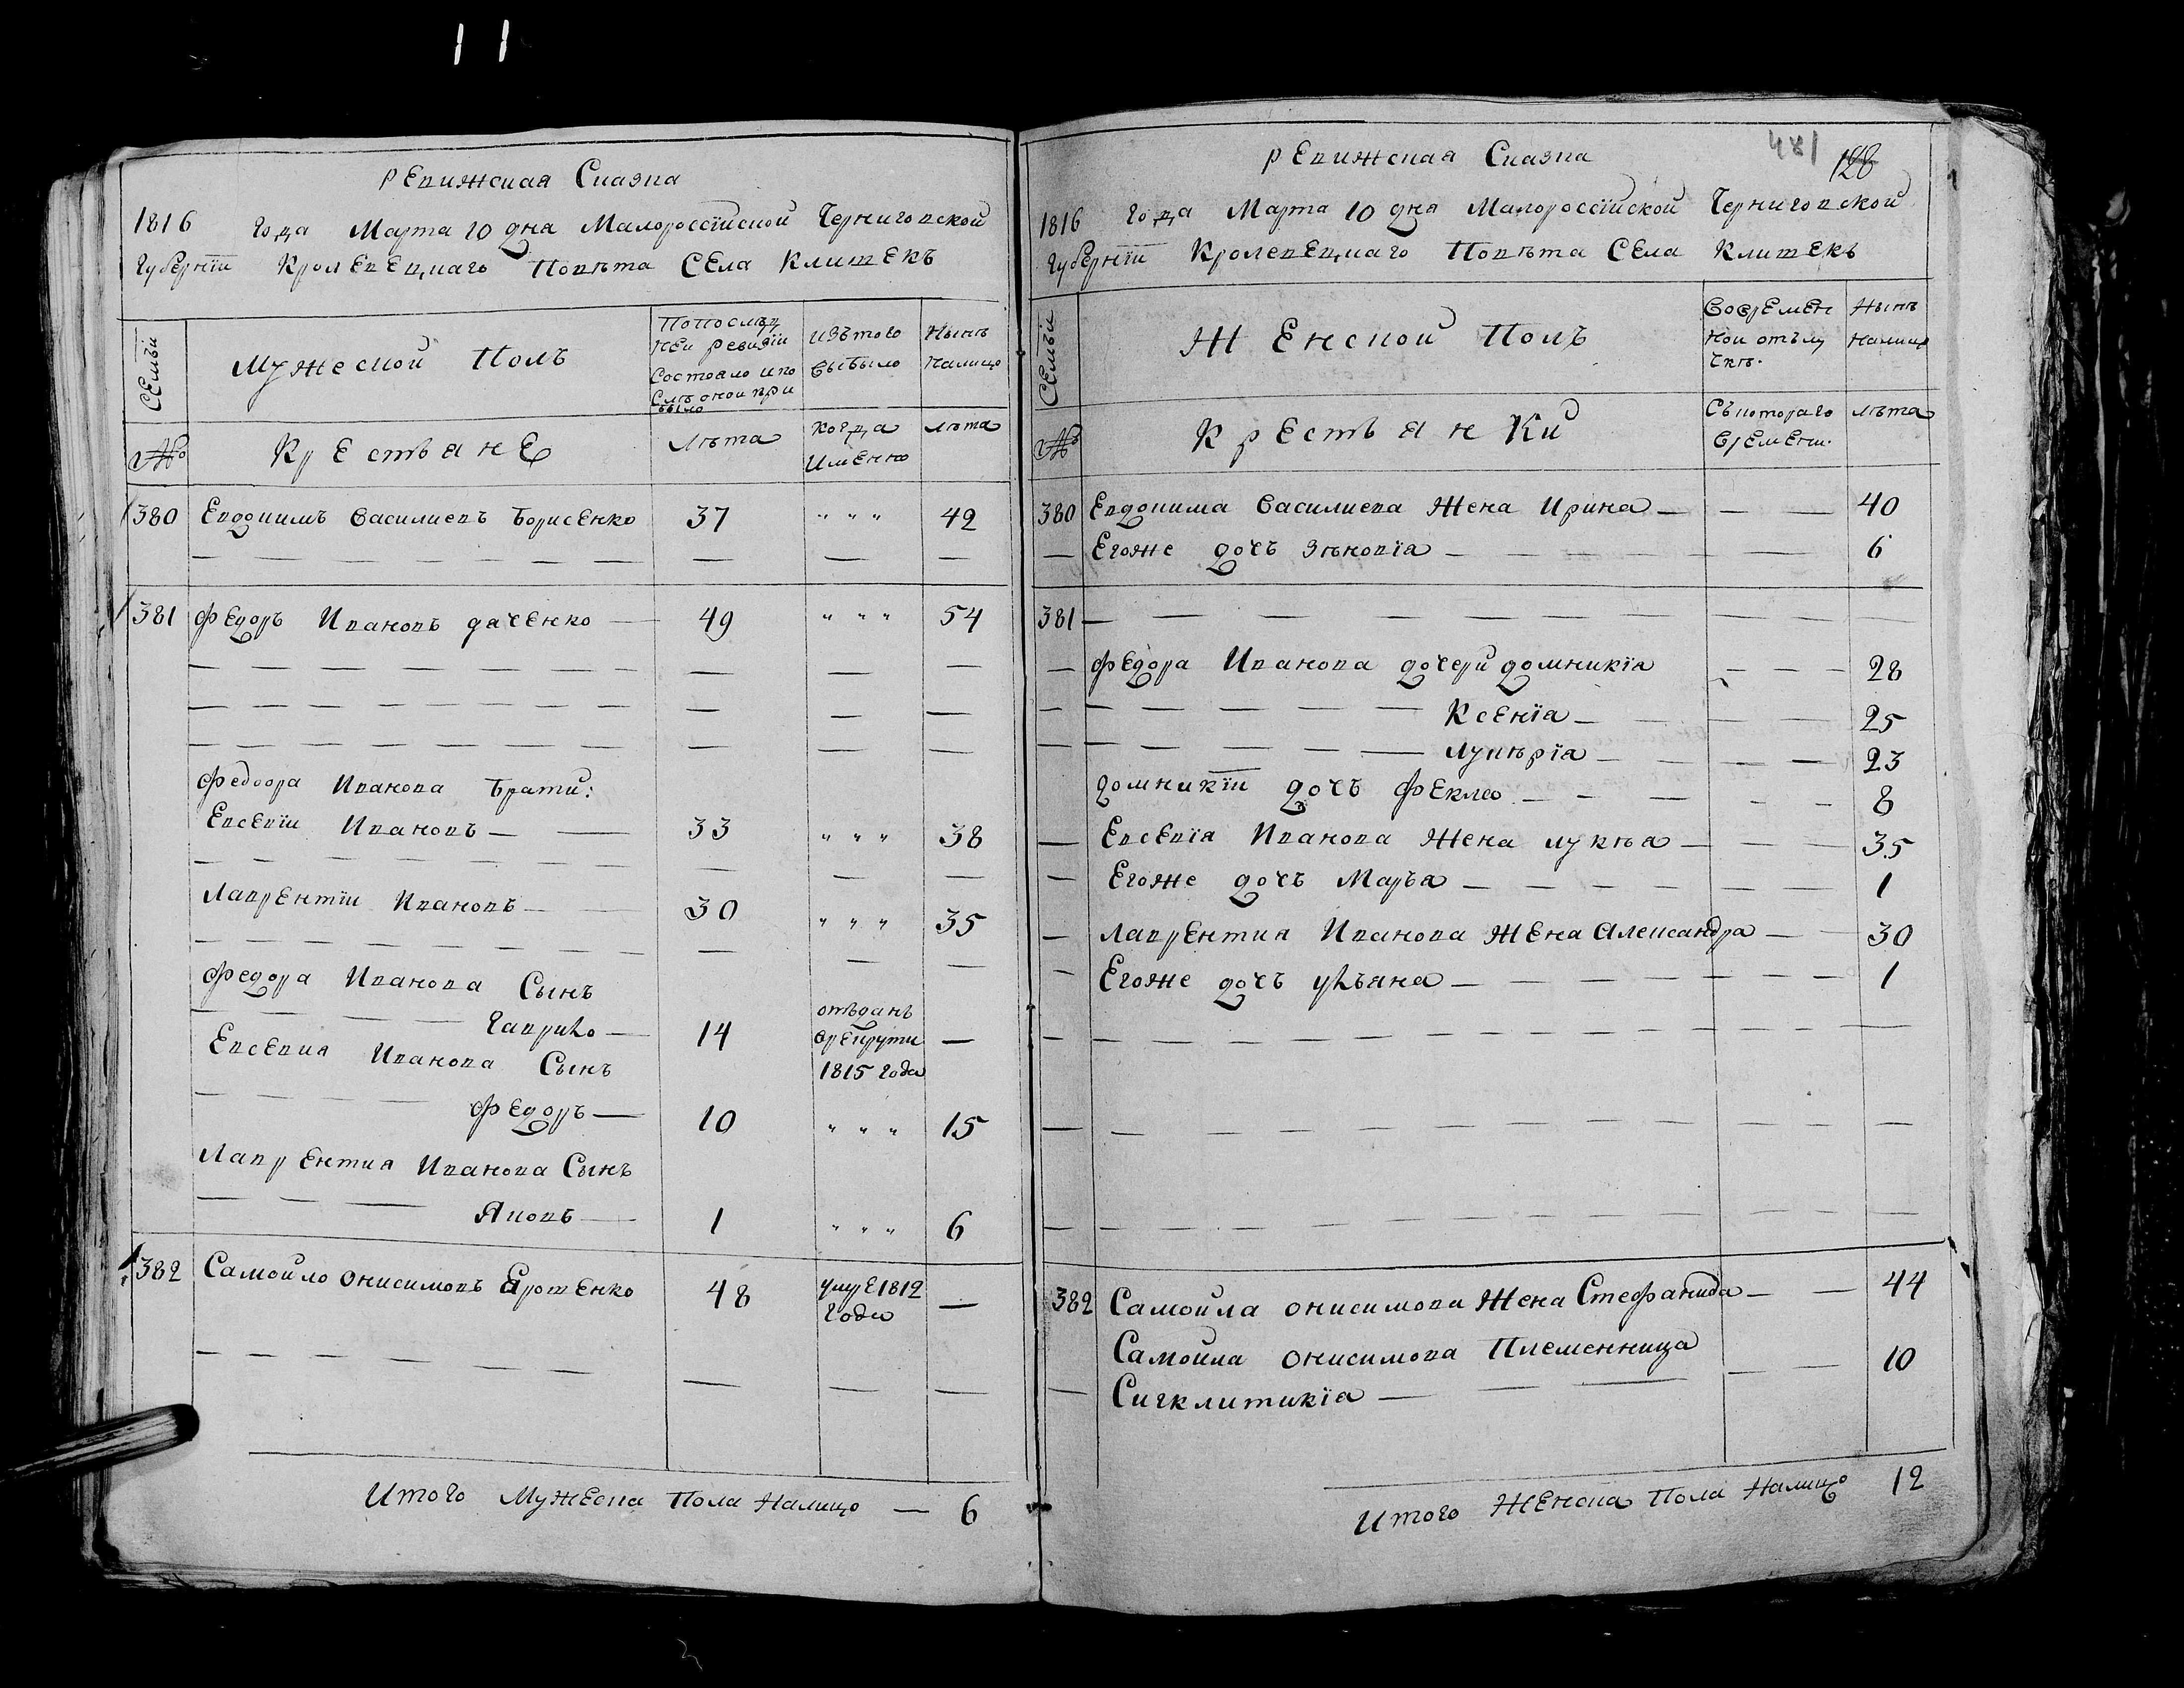 11
ревижская Сказка
1816 года Марта 10 дна Малороссїйской Черниговской
Губернїи Кролевецкаго Повѣта Села Клишекъ
Семьи
Мужеской Полъ
Попослѣд
ней ревизїи
Состояло ипо
Слѣ оной при
было
изътого
выбыло
Нынѣ
Налицо
№
Крестьяне
Лѣта
когда
Имѣнно
Лѣта
380 Евдокимъ Василиевъ Борисенко 37 " " " 42
381 Федоръ Ивановъ даченко 49 " " " 54
Федоора Иванова Брати:
Евсевїи Ивановъ 33 " " " 38
Лаврентїи Ивановъ 30 " " " 35
Федора Иванова Сынъ
Гаврило 14 отъданъ
врекруты
1815 года
Евсевия Иванова Сынъ
Федоръ 10 " " " 15
Лаврентия Иванова Сынъ
Яковъ 1 " " " 6
382 Самойло Онисимовъ Ярошенко 48 умре 1812
Года
Итого Мужеска Пола Налицо — 6
481
128
ревижская Сказка
1816 года Марта 10 дна Малороссїйской Черниговской
Губернїи Кролевецкаго Повѣта Села Клишекъ
Семьи
Женской Полъ
Вовремен
ной отълу
чкѣ.
Нынѣ
Налицо
№
Крестьянки
Съкотораго
времени.
лѣта
380 Евдокима Василиева Жена Ирина — — — 40
— Егоже дочь Зѣновїа — 6
381
— Федора Иванова дочери домникїя — — — 28
Ксенїа — 25
Лукѣрїа — 23
домникїи дочь Фекла — 8
— Евсевїя Иванова Жена лукѣа — 35
— Егоже дочь Марья — 1
— лаврентия Иванова Жена Александра — 30
— Егоже дочь ульяна — 1
382 Самойла онисимова Жена Стефанида — — 44
Самойла онисимова Племенница 10
— Сигклитикїа —
Итого Женска Пола Налицо 12